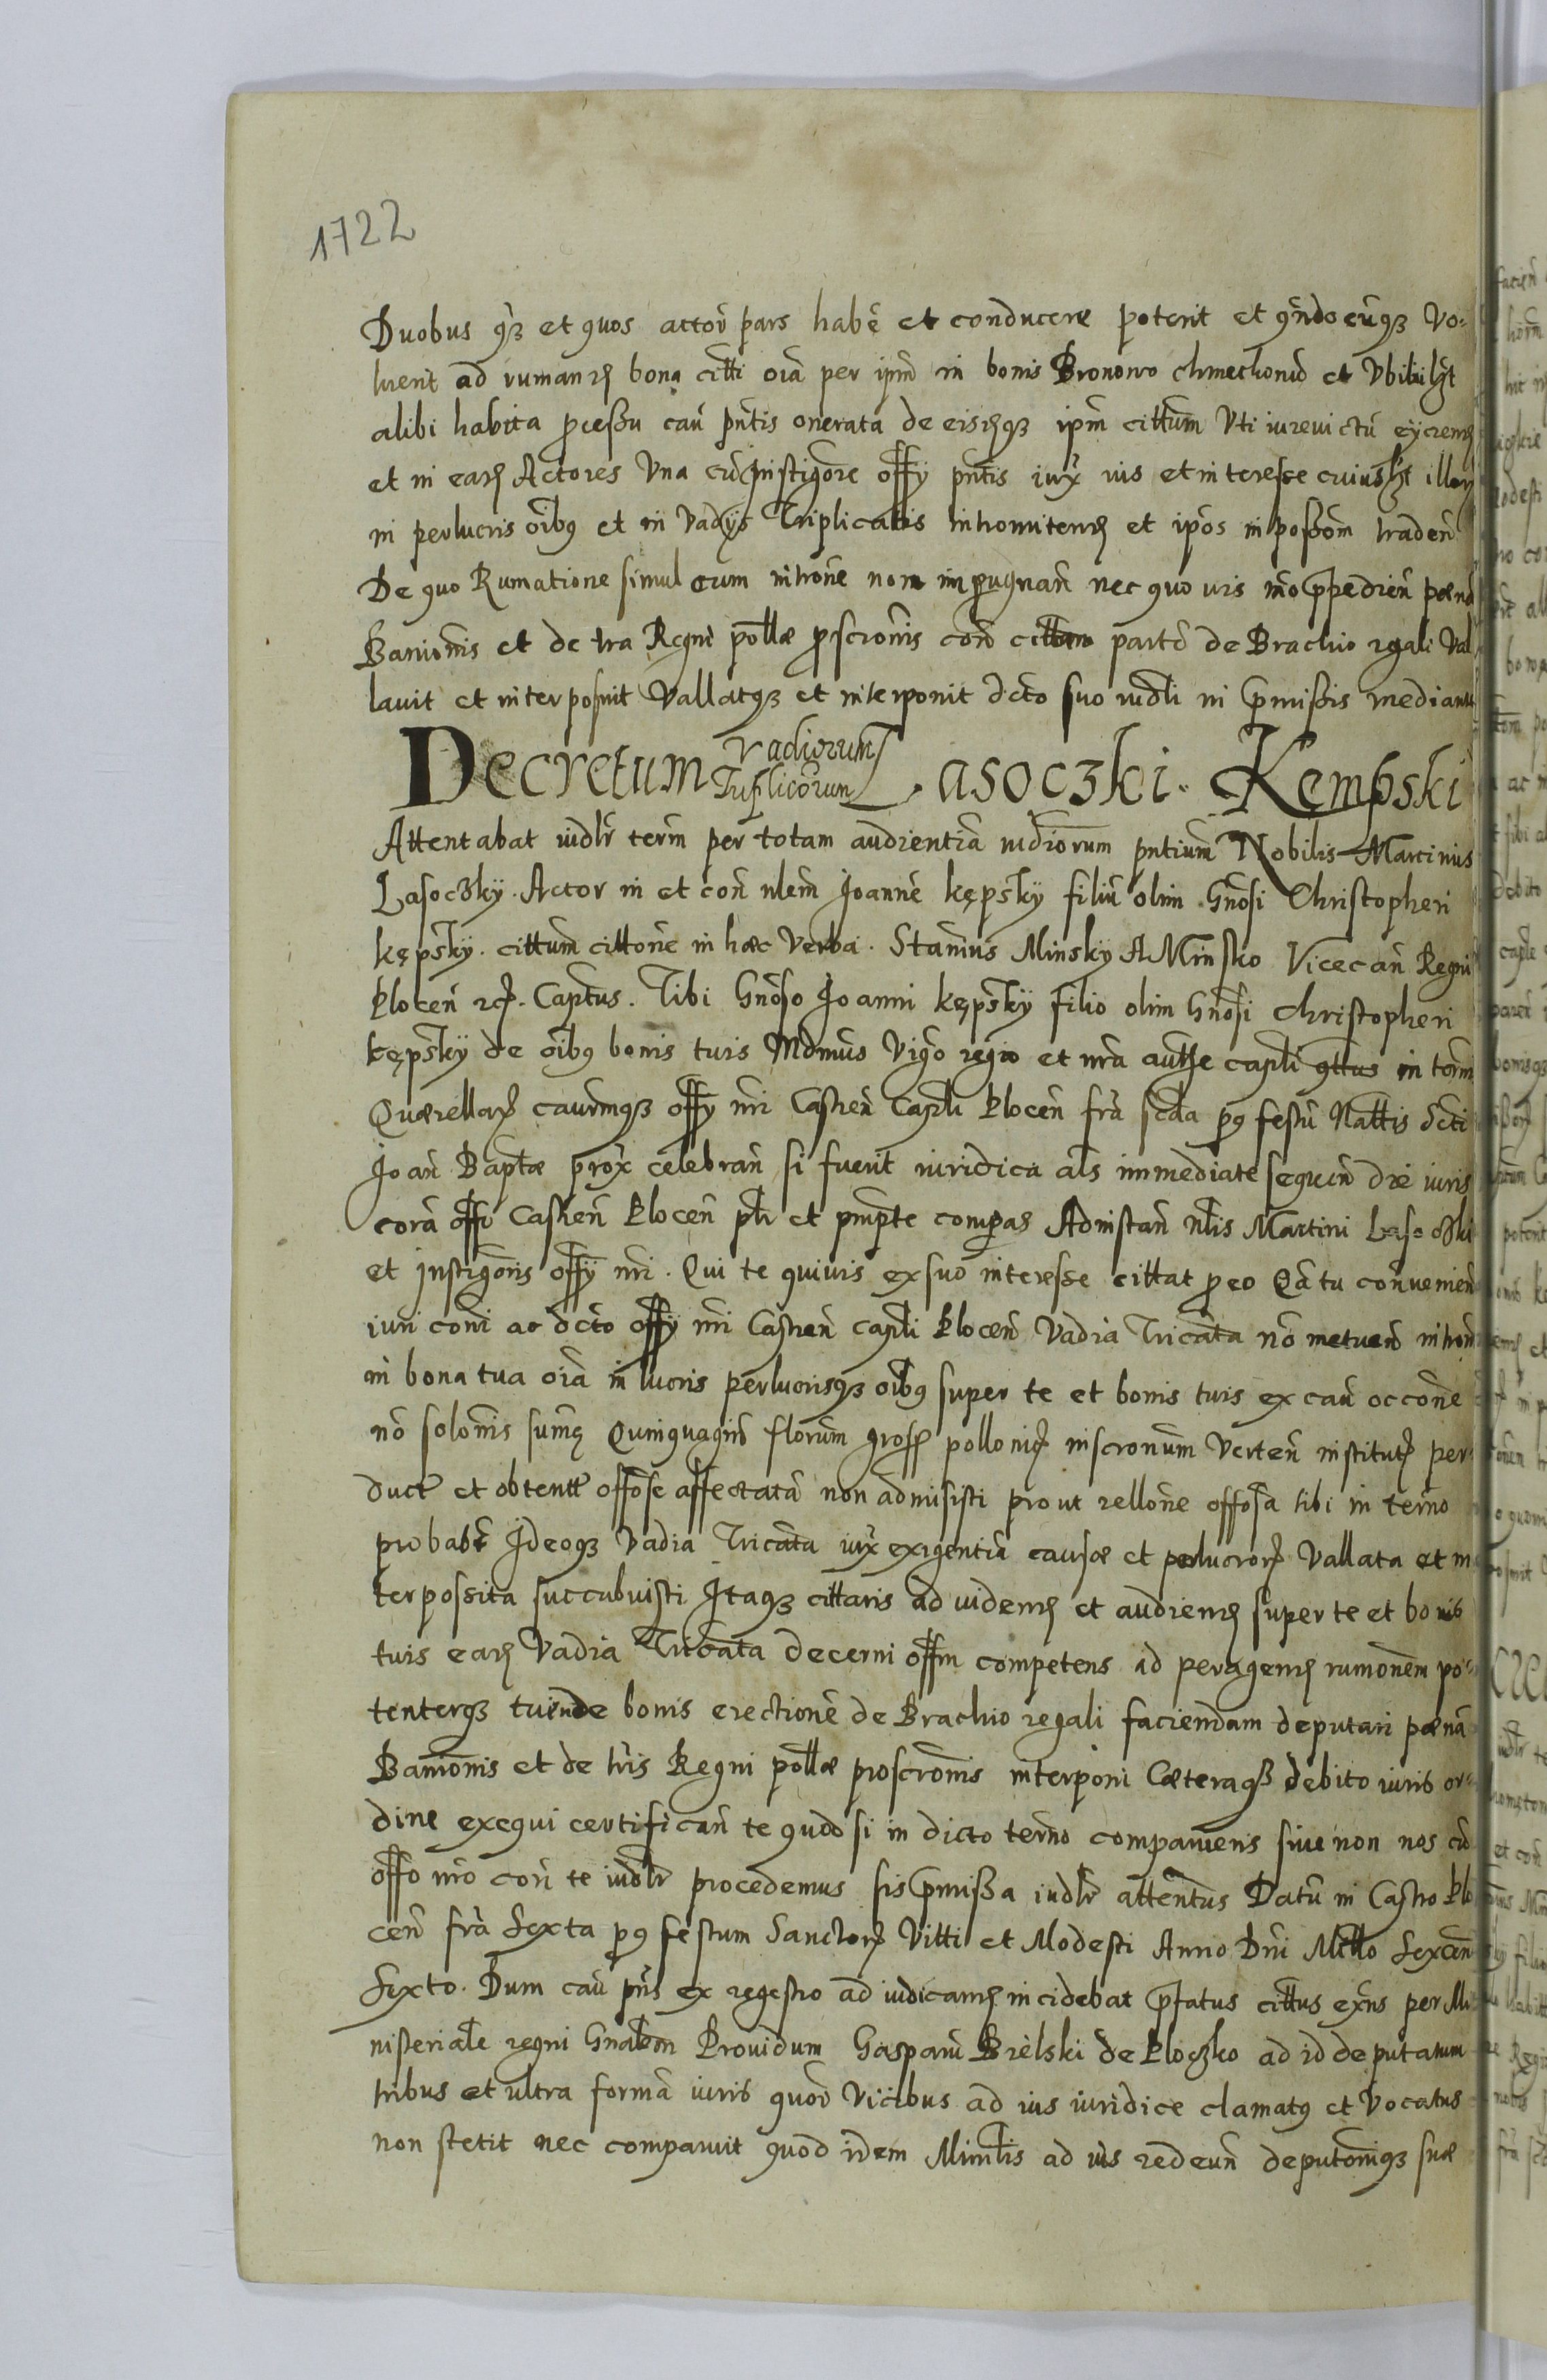 1722
Duobus qz et quos actor pars habe et conducere poterit et qndocunqz vo-
luerit ad rumand bona citti oia per ipm in bonis Bronowo chmethonu et Vbilibzt
alibi habita processu cau pntis onerata de eisdqz ipm cittum Vti iurevictu eyciend
et in ead Actores Vna cu instigore offy pntis iux ius et interesse cuiuslzt illor
in perlucris oibq et in Vadys Triplicatis intromitend et ipos in possom traden
De quo Rumatione simul cum introne non impugnan nec quo vis mo ppedien poena
Banionis et de tra Regni pollae pscronis con cittam parte de Brachio regali Val
lavit et interposuit Vallatqz et interponit dcto suo iudli in pmissis mediante
Decretum Vadiorum Triplicorum Lasoczki. Kempski
Attentabat iudlr term per totam audientia iudiorum pntium Nobilis Martinus
Lasoczky. Actor in et con nlem Joanne kępsky filiu olim Gnosi Christopheri
kępsky. cittum cittone in haec Verba. Stanius Minsky A Minsko Vicecan Regni
Plocen rcp. Captus. Tibi Gnoso Joanni kępsky filio olim Gnosi Christopheri
kępsky de oibq bonis tuis Mdmus Vigo regio et nra autte capli qttus in term
Quaerellarp caurmqz offy nri Castren Capli Plocen fra scda pq festu Nattis Scti
Joan Baptae prox celebran si fuerit iuridica als immediate sequen die iuris
cora offo Castren Plocen plr et pmpte compas Adinstan nlis Martini Lasoczki
et instigoris offy nri. Qui te quivis ex suo interesse cittat p eo Qa tu convenien
iuri coni ac dcto offy nri Castren capli Plocen Vadia Tricata no metuen intron
in bona tua oia in lucris perlucrisqz oibq super te et bonis tuis ex cau occone
no solonis sumę Quinquagin florum gross polloni inscronum Verten institut per-
duct et obtentt offose affectata non admisisti prout rellone offosa tibi in terno
probabt Ideoqz Vadia Tricata iux exigentia causae et perlucrorp Vallata et in
terpossita succubuisti Itaqz cittaris ad vidend et audiend super te et bonis
tuis ead Vadia Tricata decerni offm competens ad peragend rumonem po-
tenterqz tui nde bonis erectione de Brachio regali faciendam deputari poena
Banionis et de tris Regni pollae proscronis interponi Caeteraqz debito iuris or-
dine exequi certifican te quod si in dicto terno comparueris sive non nos cu
offo nro con te iudlr procedemus sis pmissa iudlr attentus Datu in Castro Plo
cen fra Sexta pq festum Sanctorp Vitti et Modesti Anno Dni Millo Sexcen
Sexto. Dum cau pns ex regestro ad iudicand incidebat pfatus cittus exns per Mi
nisteriale regni Gnalem Providum Gaspari Brelski de Ploczko ad id deputatum
tribus et ultra forma iuris quor Vicibus ad ius iuridice clamatq et Vocatus
non stetit nec comparuit quod idem Minlis ad ius redeun deputoniqz suae